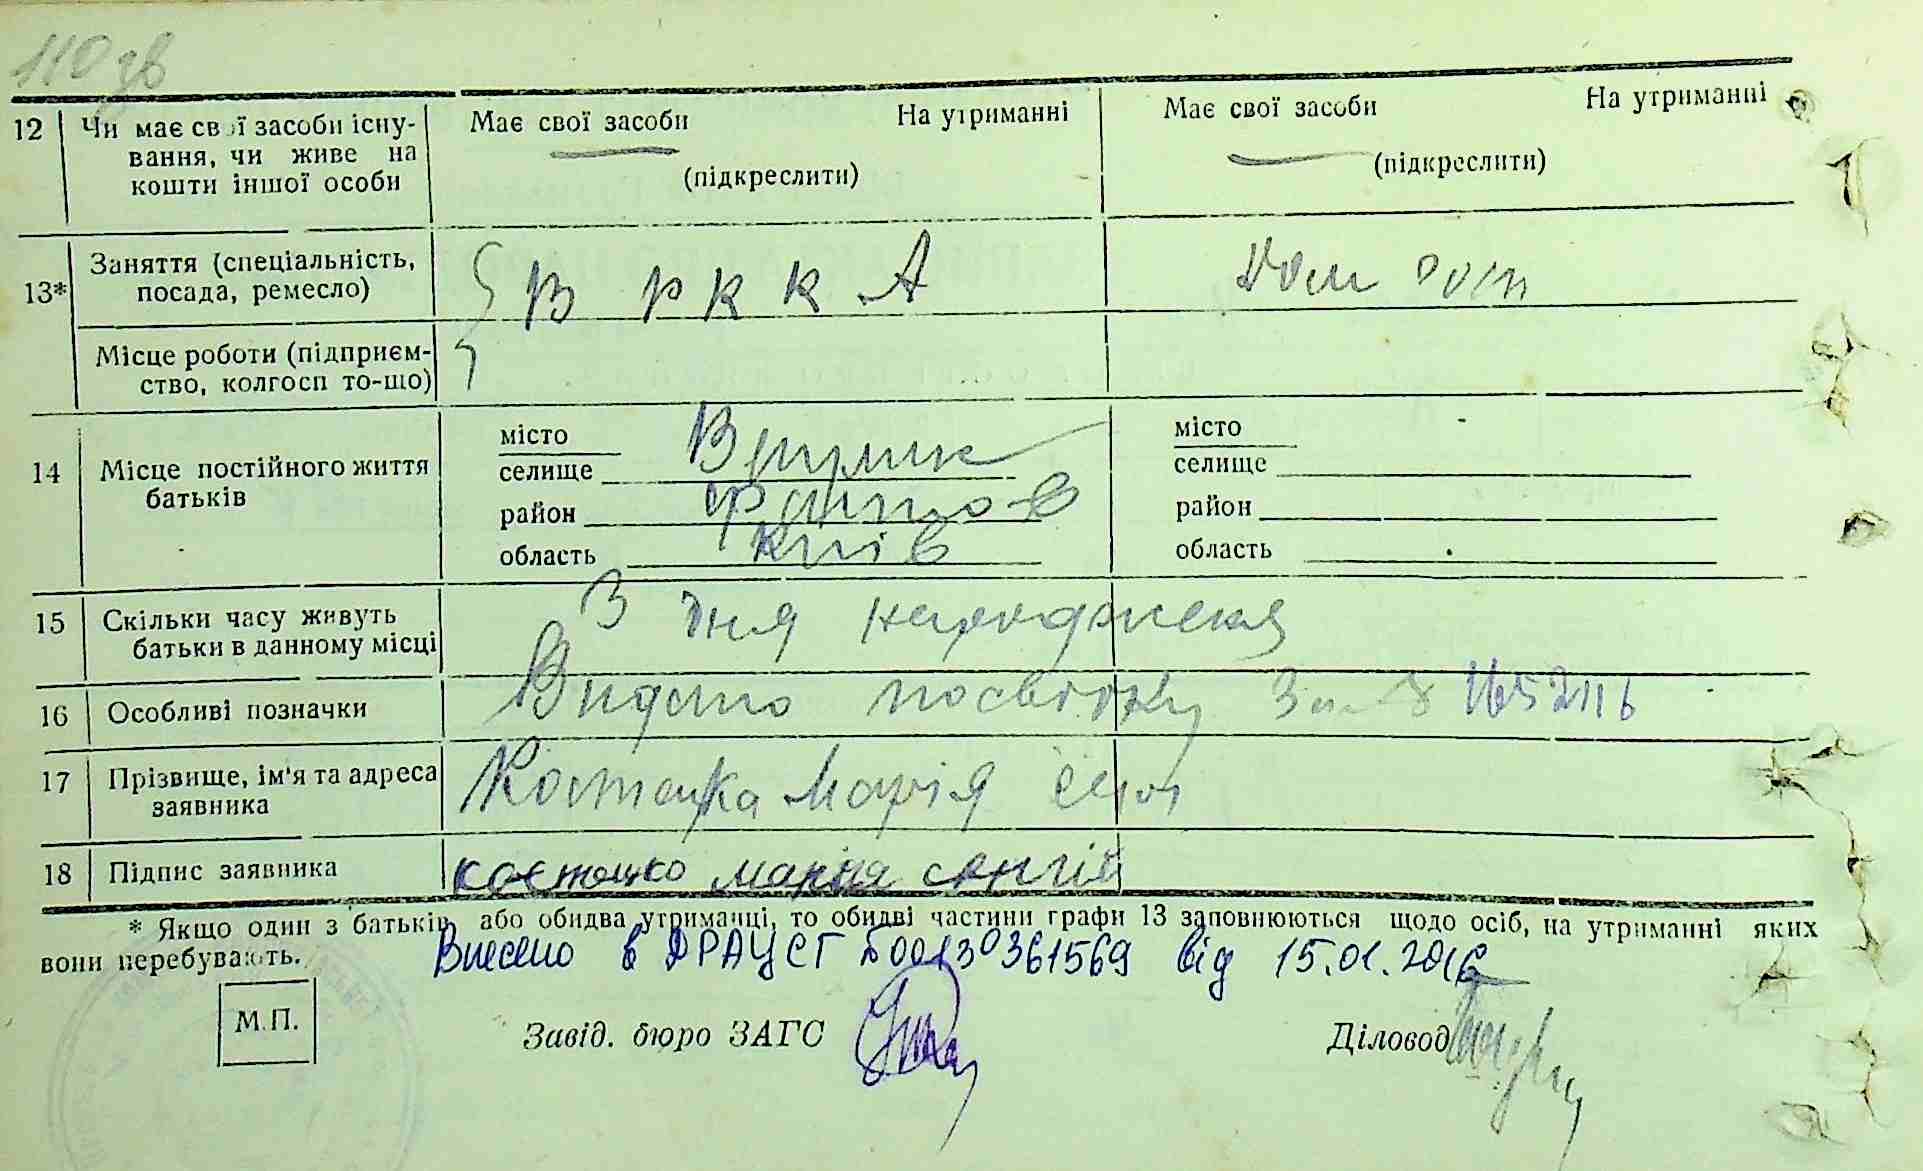 110 зв
12 Чи має свої засоби існу- Має свої засоби На утриманні Має свої засоби На утриманні
вання, чи живе на
кошти іншої особи (підкреслити) (підкреслити)
13* Заняття (спеціальність, В Р К К А Дом госп
посада, ремесло)
Місце роботи (підприєм-
ство, колгосп то-що)
місто місто
14 Місце постійного життя селище селище
батьків
район район
область Київ область
15 Скільки часу живуть З дня народження
батьки в данному місці
16 Особливі позначки Видано посвідку за №
17 Прізвище, ім'я та адреса Костецка Марія
заявника
18 Підпис заявника костецко мария
* Якщо один з батьків, або обидва утриманці, то обидві частини графи 13 заповнюються щодо осіб, на утриманні яких
вони перебувають. Внесено в ДРАЦСГ 00130361569 від 15.01.2016
М.П. Завід. бюро ЗАГС Діловод